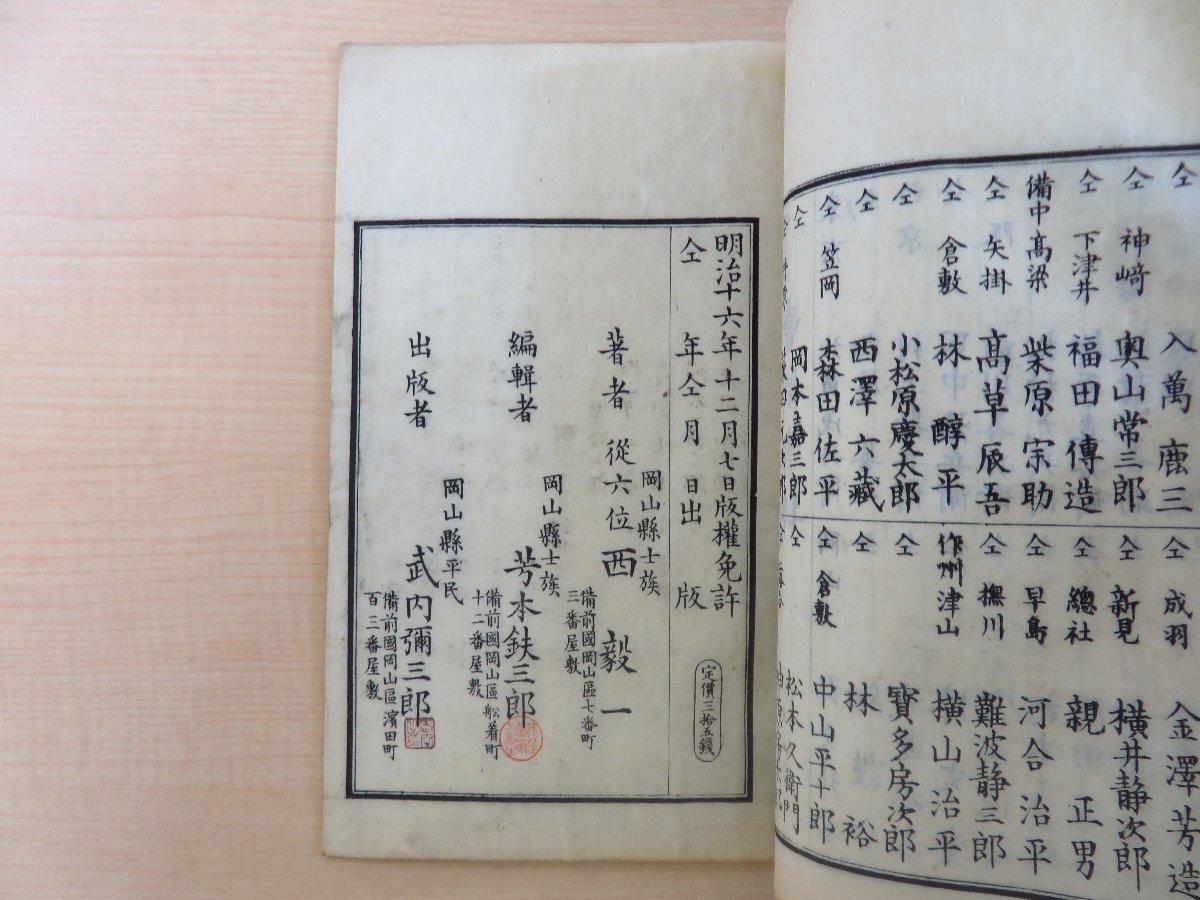 仝 入萬鹿三
仝 神﨑 奥山常三郎
仝 下津井 福田傳造
備中髙梁 柴原宗助
仝 矢掛 髙草辰吾
仝 倉敷 林醇平
仝 小松原慶太郎
仝 西澤六藏
仝 笠岡 森田佐平
仝 岡本嘉三郎
仝 成羽 金澤芳造
仝 新見 横井静次郎
仝 總社 親正男
仝 早島 河合治平
仝 撫川 難波静三郎
作州津山 横山治平
仝 寶多房次郎
仝 林裕
仝 倉敷 中山平十郎
仝 松本久衛門
明治十六年十二月七日版權免許
仝年仝月日出版
定價三拾五錢
岡山縣士族
著者 從六位 西毅一
備前國岡山區七番町
三番屋敷
岡山縣士族
編輯者 芳本鉄三郎
備前國岡山區船着町
十二番屋敷
岡山縣平民
出版者 武内彌三郎
備前國岡山區濱田町
百三番屋敷